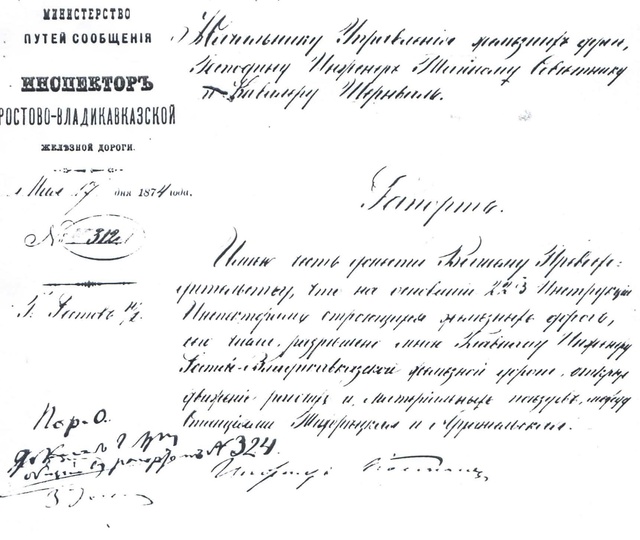 МИНИСТЕРСТВО
ПУТЕЙ СООБЩЕНІЯ
ИНСПЕКТОРЪ
РОСТОВО-ВЛАДИКАВКАЗСКОЙ
ЖЕЛѢЗНОЙ ДОРОГИ.
17 дня 1874 года.
№ 312
Г. Ростовъ н/Д.
Начальнику Управленія желѣзныхъ дорогъ,
Господину Инженеръ Тайному Совѣтнику
и Кавалеру Шернваль.
Рапортъ.
Имѣю честь донести Вашему Превосхо-
дительству, что на основаніи § 23 Инструкціи
Инспекторамъ строющихся желѣзныхъ дорогъ,
сего числа разрѣшено мною Главному Инженеру
Ростово-Владикавказской желѣзной дороги открыть
движеніе рабочихъ и матеріальныхъ поѣздовъ между
Станціями Тихорецкая и
Инспекторъ
Кор. О.
рапортомъ № 324.